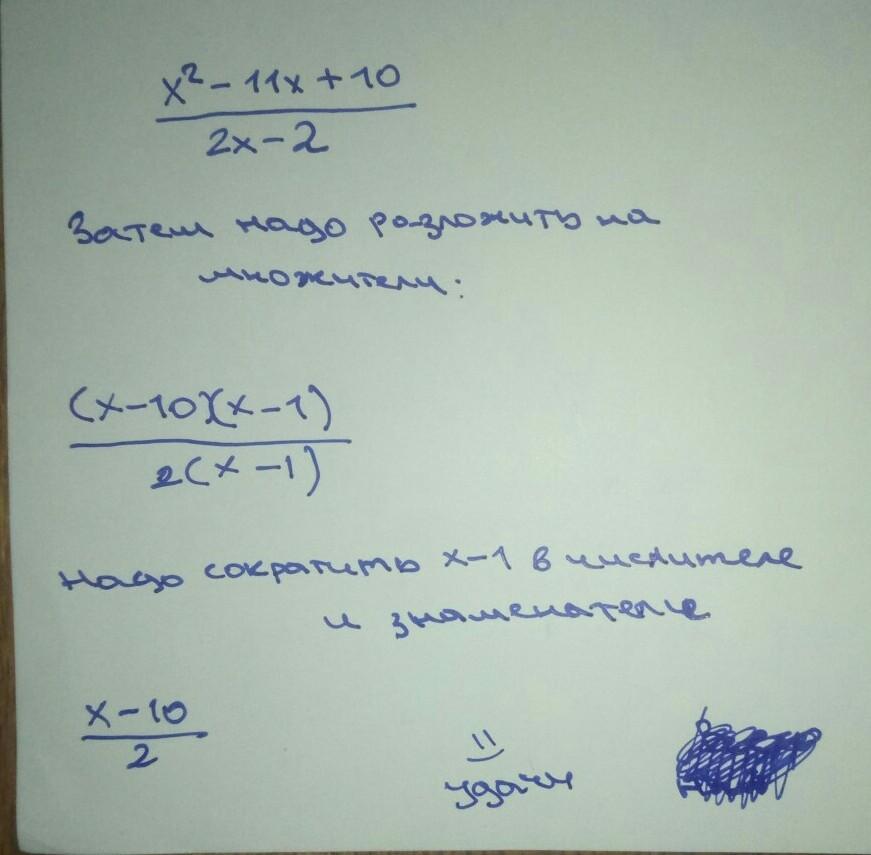 x² - 11x + 10
2x - 2
Затем надо разложить на
множители:
(x-10)(x-1)
2(x-1)
Надо сократить x-1 в числителе
и знаменателе
x-10
2
удачи